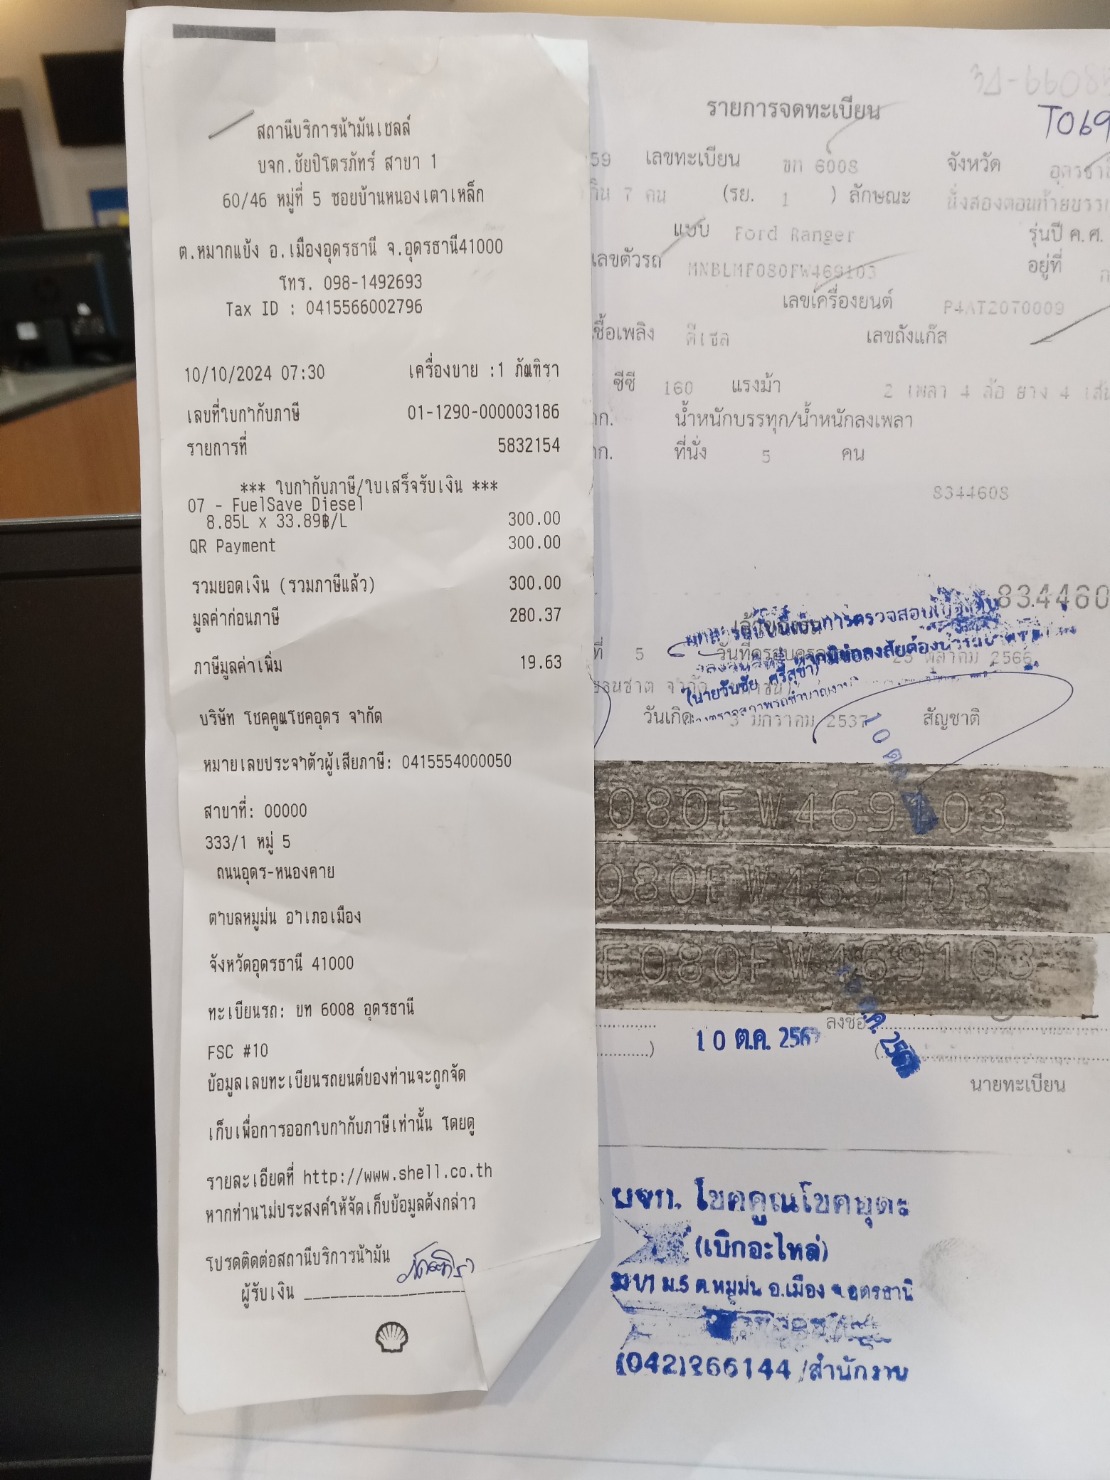 สถานีบริการน้ำมันเชลล์
บจก.ชัยปิโตรภัทร์ สาขา 1
60/46 หมู่ที่ 5 ซอยบ้านหนองเตาเหล็ก
ต.หมากแข้ง อ.เมืองอุดรธานี จ.อุดรธานี41000
โทร. 098-1492693
Tax ID : 0415566002796
10/10/2024 07:30 เครื่องขาย :1 ภัณฑิรา
เลขที่ใบกำกับภาษี 01-1290-000003186
รายการที่ 5832154
*** ใบกำกับภาษี/ใบเสร็จรับเงิน ***
07 - FuelSave Diesel
8.85L x 33.89฿/L 300.00
QR Payment 300.00
รวมยอดเงิน (รวมภาษีแล้ว) 300.00
มูลค่าก่อนภาษี 280.37
ภาษีมูลค่าเพิ่ม 19.63
บริษัท โชคคูณโชคอุดร จำกัด
หมายเลขประจำตัวผู้เสียภาษี: 0415554000050
สาขาที่: 00000
333/1 หมู่ 5
ถนนอุดร-หนองคาย
ตำบลหมูม่น อำเภอเมือง
จังหวัดอุดรธานี 41000
ทะเบียนรถ: ขท 6008 อุดรธานี
FSC #10
ข้อมูลเลขทะเบียนรถยนต์ของท่านจะถูกจัด
เก็บเพื่อการออกใบกำกับภาษีเท่านั้น โดยดู
รายละเอียดที่ http://www.shell.co.th
หากท่านไม่ประสงค์ให้จัดเก็บข้อมูลดังกล่าว
โปรดติดต่อสถานีบริการน้ำมัน
ผู้รับเงิน
รายการจดทะเบียน
T069
59 เลขทะเบียน 6008 จังหวัด
7 คน (รย. 1 ) ลักษณะ
แบบ Ford Ranger รุ่นปี ค.ศ.
เลขตัวรถ MNBLMF080FW469103 อยู่ที่
เลขเครื่องยนต์ P4AT2070009
เชื้อเพลิง ดีเซล เลขถังแก๊ส
ซีซี 160 แรงม้า 2 เพลา 4 ล้อ ยาง 4
กก. น้ำหนักบรรทุก/น้ำหนักลงเพลา
กก. ที่นั่ง 5 คน
8344608
834460
ที่ 5
วันเกิด 3 มกราคม 2537 สัญชาติ
(นายวันชัย ศรีสุขา)
080FW469103
080FW469103
F080FW469103
ลงชื่อ
10 ต.ค. 2567
นายทะเบียน
บจก. โชคคูณโชคอุดร
(เบิกอะไหล่)
ม.5 ต.หมูม่น อ.เมือง จ.อุดรธานี
(042)266144 /สำนักงาน